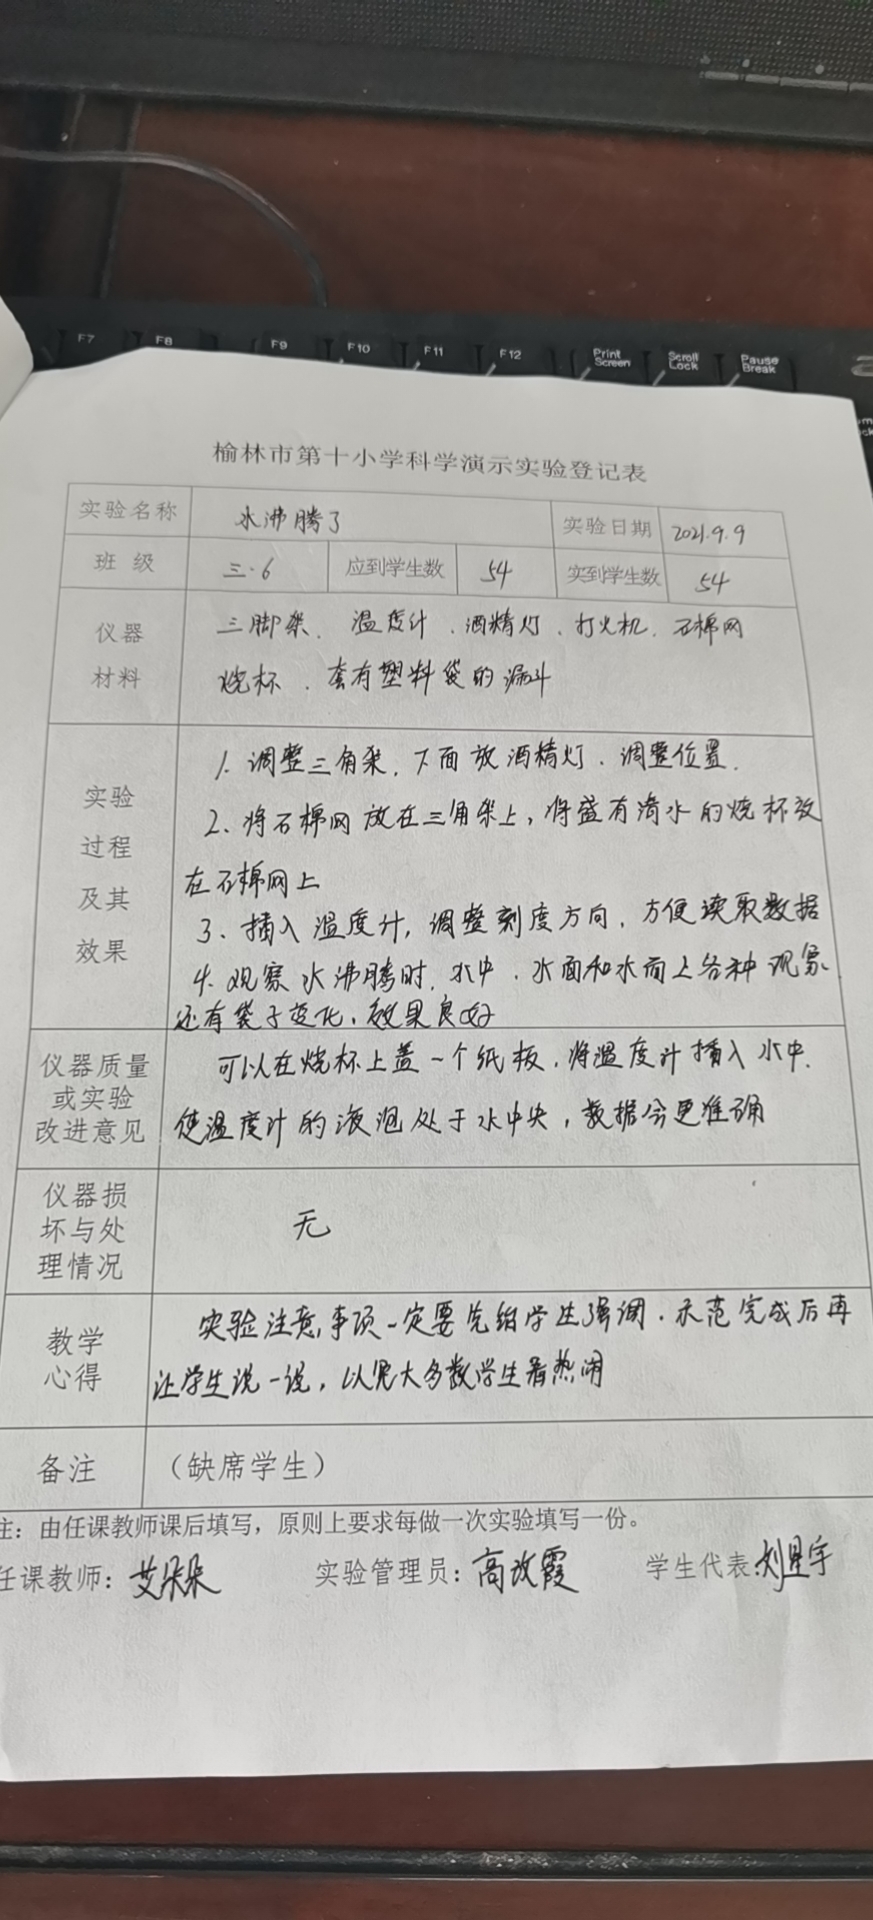 F7 F8 F9 F10 F11 F12 Print Screen Scroll Lock Pause Break
榆林市第十小学科学演示实验登记表
实验名称 水沸腾了 实验日期 2021.9.9
班 级 三.6 应到学生数 54 实到学生数 54
仪器 三脚架、温度计、酒精灯、打火机、石棉网
材料 烧杯、套有塑料袋的漏斗
实验 1.调整三角架,下面放酒精灯、调整位置.
过程 2、将石棉网放在三角架上,将盛有清水的烧杯放
及其 在石棉网上
效果 3、插入温度计,调整刻度方向,方便读取数据
4.观察水沸腾时,水中、水面和水面上各种现象
还有袋子变化,效果良好
仪器质量 可以在烧杯上盖一个纸板,将温度计插入水中.
或实验
改进意见 使温度计的液泡处于水中央,数据会更准确
仪器损
坏与处 无
理情况
教学 实验注意事项一定要先给学生强调.示范完成后再
心得 让学生说一说,以免大多数学生看热闹
备注 (缺席学生)
注:由任课教师课后填写,原则上要求每做一次实验填写一份。
任课教师:艾朵朵 实验管理员:高改霞 学生代表:刘星宇